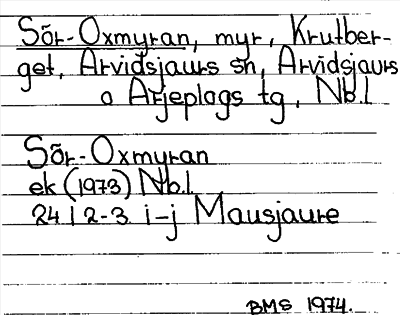 Sör-Oxmyran, myr, Krutber-
get, Arvidsjaurs sn, Arvidsjaurs
o Arjeplogs tg, Nb.l
Sör-Oxmyran
ek (1973) Nb.l.
24 I 2-3 i-j Mausjaure
BMS 1974.